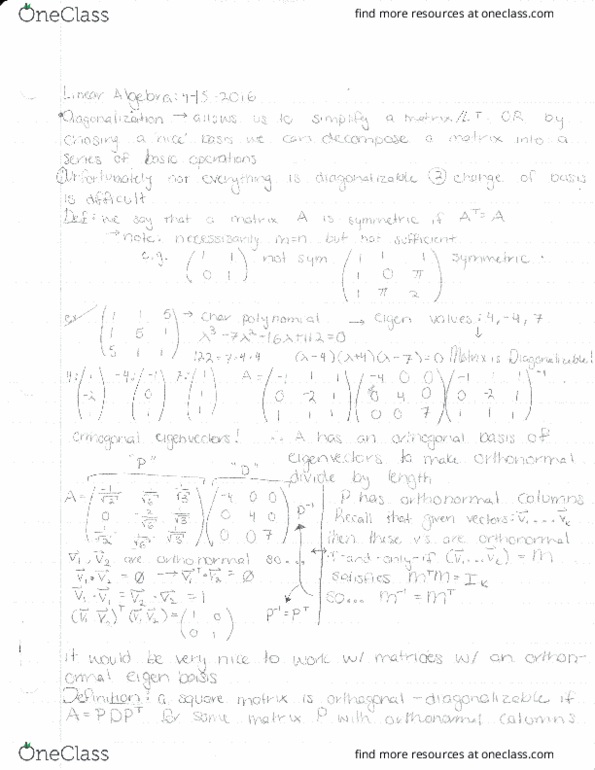 OneClass
find more resources at oneclass.com
Linear Algebra: 4-15-2016
•Diagonalization → allows us to simplify a matrix/L.T. OR by
chosing a 'nice' basis we can decompose a matrix into a
series of basic operations
① Unfortunately not everything is diagonalizable ② change of basis
is difficult
Def: we say that a matrix A is symmetric if Aᵀ=A
→ note: necessisarily m=n but not sufficient
e.g. (1 1; 0 1) not sym (1 1 1; 1 0 π; 1 π 2) symmetric
ex/ (1 1 5; 1 5 1; 5 1 1) → char polynomial → Eigen values: 4, -4, 7
λ³ -7λ² -16λ+112=0
(λ-4)(λ+4)(λ-7)=0 Matrix is Diagonalizable!
4: (1; -2; 1) -4: (-1; 0; 1) 7: (1; 1; 1) A = (-1 1 1; 0 -2 1; 1 1 1) (-4 0 0; 0 4 0; 0 0 7) (-1 1 1; 0 -2 1; 1 1 1)⁻¹
orthogonal eigenvectors! ∴ A has an orthogonal basis of
eigenvectors to make orthonormal
divide by length
"P" "D"
A = (-1/√2 1/√6 1/√3; 0 -2/√6 1/√3; 1/√2 1/√6 1/√3) (-4 0 0; 0 4 0; 0 0 7) P⁻¹
P has orthonormal columns
Recall that given vectors: v⃗₁...v⃗ₖ
then these v's are orthonormal
if-and-only-if (v⃗₁...v⃗ₖ) = M
satisfies MᵀM = Iₖ
so... M⁻¹ = Mᵀ
v⃗₁, v⃗₂ are orthonormal so...
v⃗₁·v⃗₂ = 0 → v⃗₁ᵀ·v⃗₂ = 0
v⃗₁·v⃗₁ = v⃗₂·v⃗₂ = 1
(v⃗₁ v⃗₂)ᵀ(v⃗₁ v⃗₂) = (1 0; 0 1)
P⁻¹=Pᵀ
it would be very nice to work w/ matrices w/ an orthon-
ormal eigen basis
Definition: a square matrix is orthogonal-diagonalizable if
A = PDPᵀ for some matrix P with orthonormal columns
OneClass
find more resources at oneclass.com